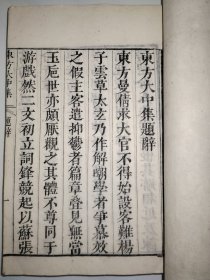 東方大中集題辭
東方曼倩求大官不得始設客難楊
子雲草太玄乃作解嘲學者爭慕效
之假主客遣抑鬱者篇章疊見無當
玉巵世亦頗厭觀之其體不尊同于
游戲然二文初立詞鋒競起以蘇張
東方大中集
題辭
一